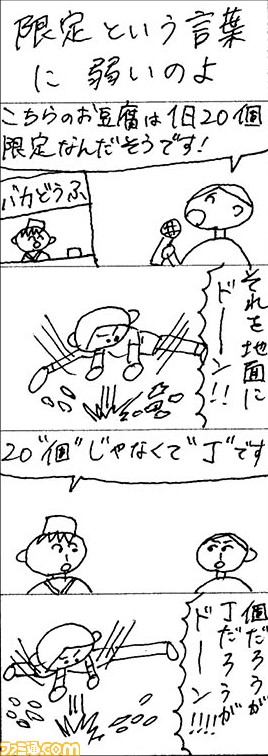 限定という言葉
に弱いのよ
こちらのお豆腐は1日20個
限定なんだそうです!
バカどうふ
それを地面に
ドーン!!
20“個”じゃなくて“丁”です
個だろうが
丁だろうが
ドーン!!!!
ファミ通.com